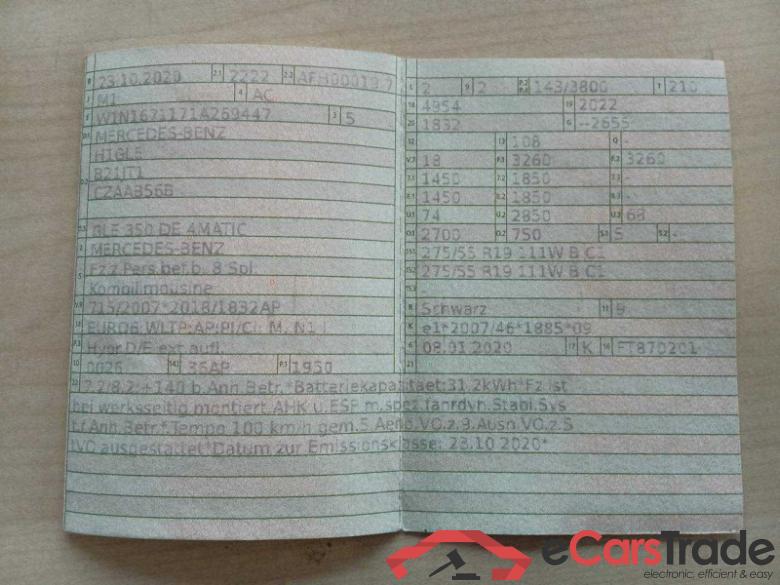 B 23.10.2020 2.1 2222 2.2
J M1 4 AC
E W1N1671171A269447 3 5
D.1 MERCEDES-BENZ
H1GLE
R21JT1
D.2 CZAAB56B
D.3 GLE 350 DE 4MATIC
2 MERCEDES-BENZ
5 Fz.z.Pers.bef.b. 8 Spl.
Kombilimousine
V.9 715/2007*2018/1832AP
14 EURO6;WLTP;AP;PI/CI; M, N1 I
P.3 Hybr.D/E ext.aufl.
10 0026 14.1 36AP P.1 1950
22 7.2/8.2:+140 b.Anh.Betr.*Batteriekapazitaet:31.2kWh*Fz.ist
bei werksseitig montiert.AHK u.ESP m.spez.fahrdyn.Stabi.Sys
f.Anh.Betr.*Tempo 100 km/h gem.5.Aend.VO.z.9.Ausn.VO.z.S
tVO ausgestattet*Datum zur Emissionsklasse: 23.10.2020*
L 2 9 2 P.2 P.4 143/3800 T 210
18 4954 19 2022
20 1832 G --2655
12 - 13 108 Q -
V.7 18 F.1 3260 F.2 3260
7.1 1450 7.2 1850 7.3 -
8.1 1450 8.2 1850 8.3 -
U.1 74 U.2 2850 U.3 68
O.1 2700 O.2 750 S.1 5 S.2 -
15.1 275/55 R19 111W B C1
15.2 275/55 R19 111W B C1
15.3 -
R Schwarz 11 9
K e1*2007/46*1885*09
6 08.01.2020 17 K 16 FT870201
21
eCarsTrade
electronic, efficient & easy